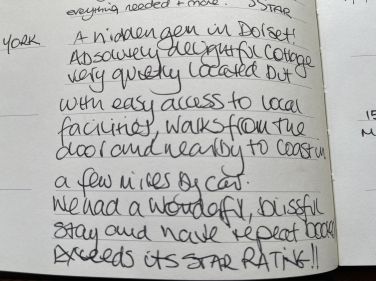 everything needed + more. 5 STAR
YORK
A hidden gem in Dorset!
Absolutely delightful cottage
very quietly located but
with easy access to local
facilities, walks from the
door and nearby to coast in
a few miles by car.
We had a wonderful, blissful
stay and have repeat booked
EXCEEDS ITS STAR RATING!!
15